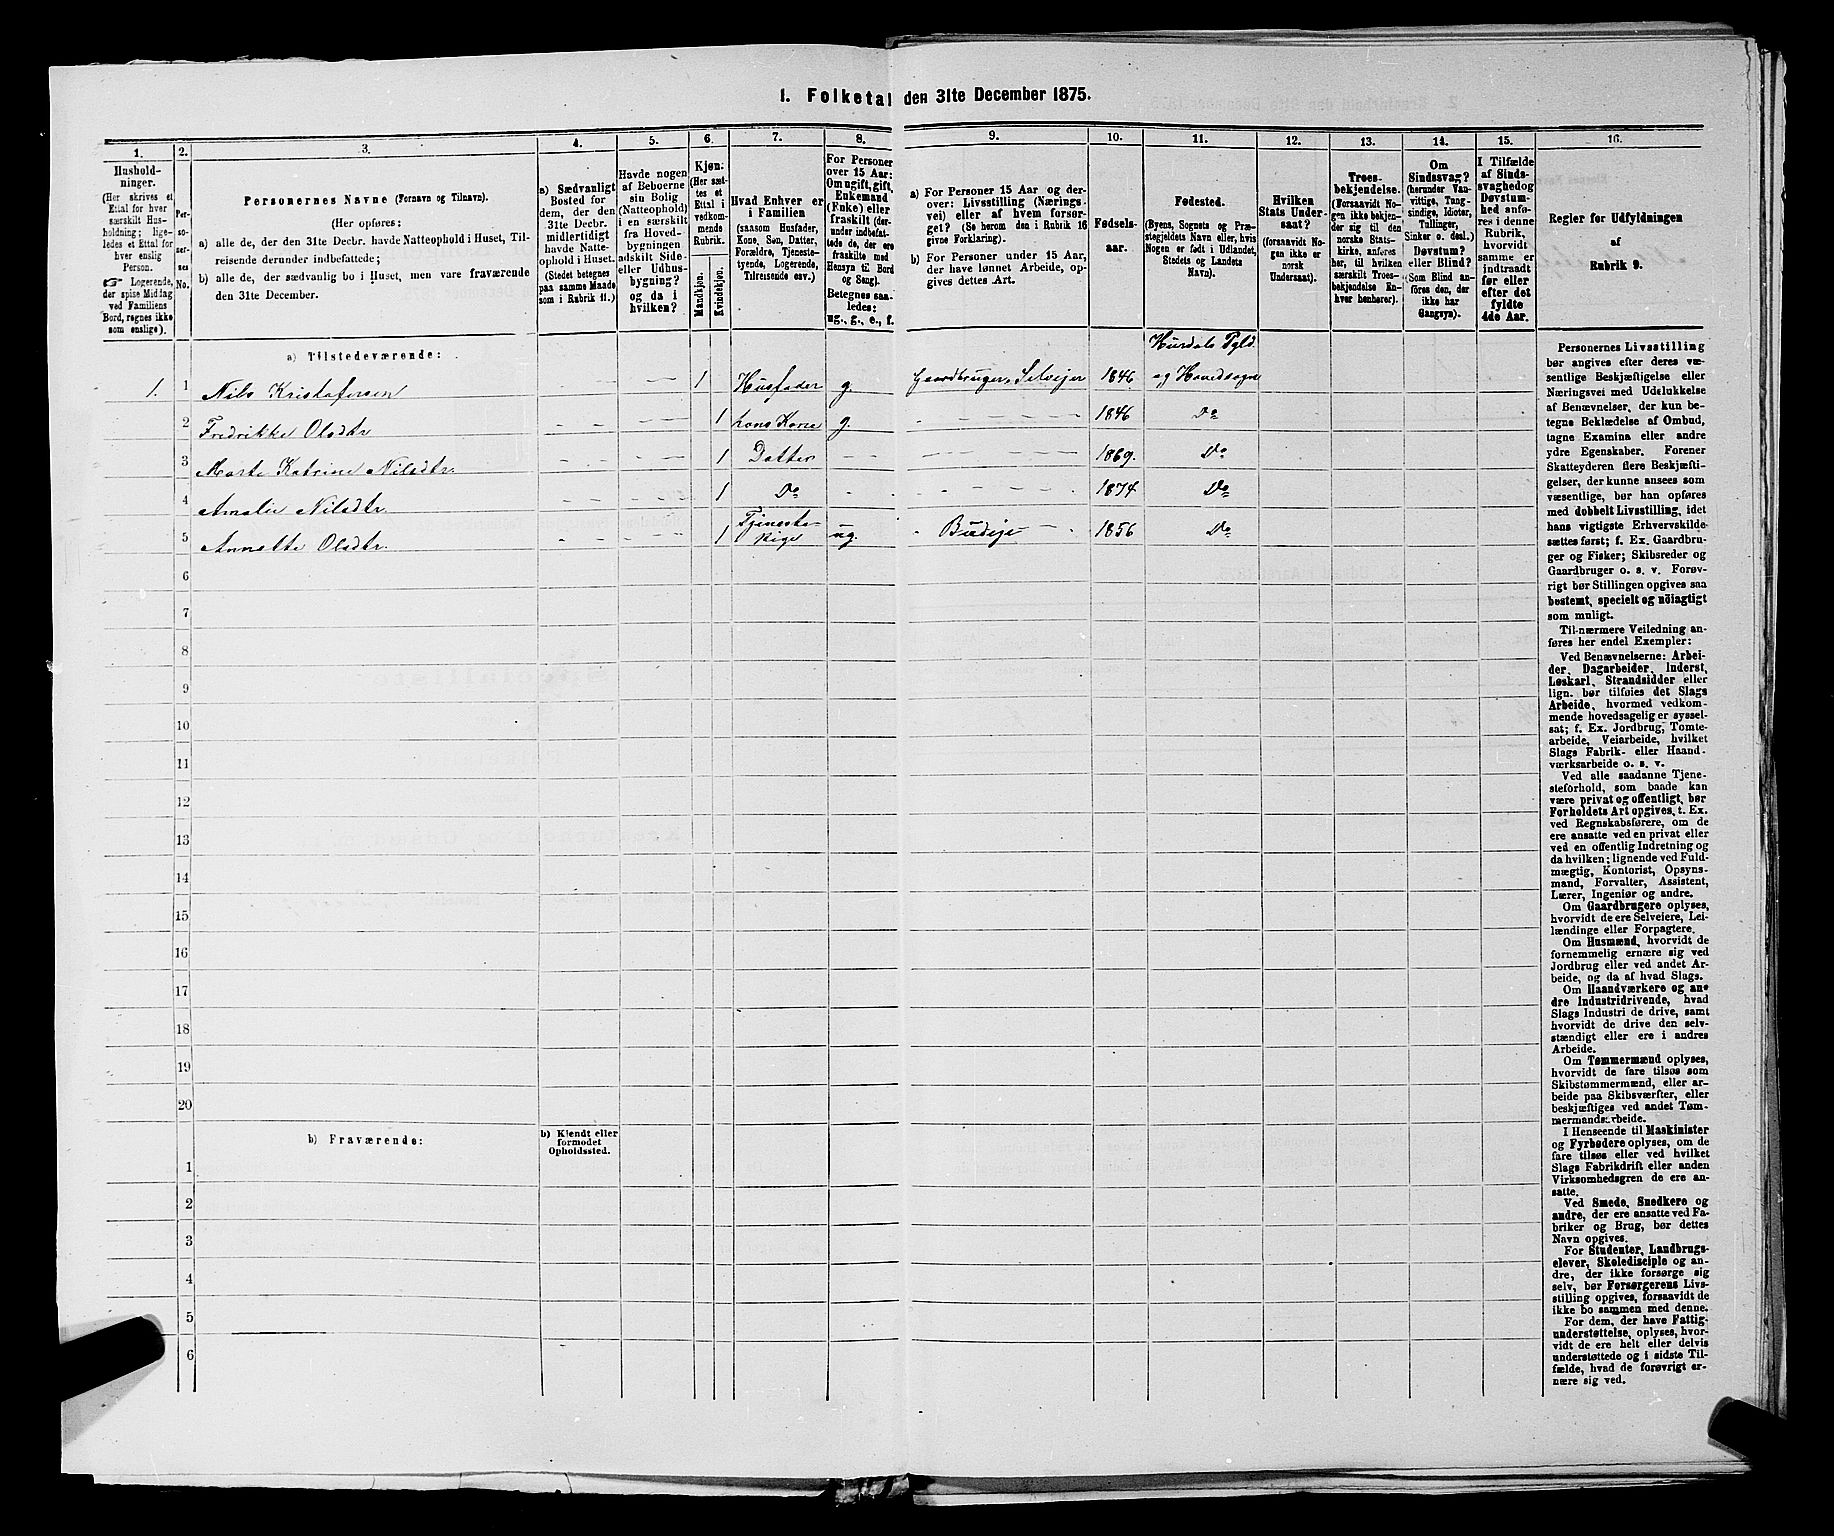 1. Folketal den 31te December 1875.
1.
2.
3.
4.
5.
6.
7.
8.
9.
10.
11.
12.
13.
14.
15.
16.
Husholdninger.
(Her skrives et
Ettal for hver
særskilt Husholdning;
ligeledes et Ettal for
hver enslig
Person.
☞ Logerende,
der spise Middag
ved Familiens
Bord, regnes ikke
som enslige).
Personernes No.
Personernes Navne (Fornavn og Tilnavn).
(Her opføres:
a) alle de, der den 31te Decbr. havde Natteophold i Huset, Tilreisende derunder indbefattede;
b) alle de, der sædvanlig bo i Huset, men vare fraværende
den 31te December.
a) Sædvanligt
Bosted for
dem, der den
31te Decbr.
midlertidigt
havde Natteophold i Huset.
(Stedet betegnes
paa samme Maade
som i Rubrik 11.)
Havde nogen
af Beboerne
sin Bolig
(Natteophold)
i en særskilt
fra Hovedbygningen
adskilt Side-
eller Udhusbygning?
og da i
hvilken?
Kjøn.
(Her sættes et
Ettal i
vedkommende
Rubrik.
Mandkjøn.
Kvindekjøn.
Hvad Enhver er
i Familien
(saasom Husfader,
Kone, Søn, Datter,
Forældre, Tjenestetyende, Logerende,
Tilreisende osv.)
For Personer
over 15 Aar:
Om ugift, gift,
Enkemand
(Enke) eller
fraskilt (derunder indbefattede de, der ere
fraskilte med
Hensyn til Bord
og Seng).
Betegnes saaledes:
ug., g., e., f.
a) For Personer 15 Aar og derover: Livsstilling (Næringsvei) eller af hvem forsørget? (Se herom den i Rubrik 16
givne Forklaring).
b) For Personer under 15 Aar,
der have lønnet Arbeide, opgives dettes Art.
Fødselsaar.
Fødested.
(Byens, Sognets og Præstegjeldets Navn eller, hvis
Nogen er født i Udlandet,
Stedets og Landets
Navn).
Hvilken
Stats Undersaat?
(forsaavidt Nogen ikke er
norsk
Undersaat).
Troesbekjendelse.
(Forsaavidt Nogen ikke bekjender sig til den
norske Statskirke, anføres
her, til hvilken
særskilt Troesbekjendelse Enhver henhører).
Om
Sindssvag?
(herunder Vanvittige, Tungsindige, Idioter,
Tullinger,
Sinker o. desl.)
Døvstum?
eller Blind?
(Som Blind anføres den, der
ikke har
Gangsyn).
I Tilfælde
af Sindssvaghed og
Døvstumhed anføres i denne
Rubrik,
hvorvidt
samme er
indtraadt
før eller
efter det
fyldte
4de Aar.
Regler for Udfyldningen
af
Rubrik 9.
a) Tilstedeværende:
Hurdals Pgld.
1. 1 Nils Kristofersen — — 1 Husfader g. Gaardbruger, Selveier 1846 og Hovedsogne
2 Fredrikke Olsdtr — — 1 hans Kone g. — 1846 Do
3 Marte Katrine Nilsdtr. — — 1 Datter — — 1869. Do
4 Amalie Nilsdtr — — 1 Do — — 1874 Do
5 Annette Olsdtr. — — 1 Tjenestepige ug. Budeje 1856 Do
6
7
8
9
10
11
12
13
14
15
16
17
18
19
20
b) Fraværende:
b) Kjendt eller
formodet
Opholdssted.
1
2
3
4
5
6
Personernes Livsstilling
bør angives efter deres væsentlige Beskjæftigelse eller
Næringsvei med Udelukkelse
af Benævnelser, der kun betegne Beklædelse af Ombud,
tagne Examina eller andre
ydre Egenskaber. Forener
Skatteyderen flere Beskjæftigelser, der kunne ansees som
væsentlige, bør han opføres
med dobbelt Livsstilling, idet
hans vigtigste Erhvervskilde
sættes først; f. Ex. Gaardbruger og Fisker; Skibsreder og
Gaardbruger o. s. v. Forøvrigt bør Stillingen opgives saa
bestemt, specielt og nøiagtigt
som muligt.
Til nærmere Veiledning anføres her endel Exempler:
Ved Benævnelserne: Arbeider, Dagarbeider, Inderst,
Løskarl, Strandsidder eller
lign. bør tilføies det Slags
Arbeide, hvormed vedkommende hovedsagelig er sysselsat; f. Ex. Jordbrug, Tomtearbeide, Veiarbeide, hvilket
Slags Fabrik- eller Haandværksarbeide o. s. v.
Ved alle saadanne Tjenesteforhold, som baade kan
være privat og offentligt, bør
Forholdets Art opgives, t. Ex.
ved Regnskabsførere, om de
ere ansatte ved en privat eller
ved en offentlig Indretning og
da hvilken; lignende ved Fuldmægtig, Kontorist, Opsynsmand, Forvalter, Assistent,
Lærer, Ingeniør og andre.
Om Gaardbrugere oplyses,
hvorvidt de ere Selveiere, Leilændinge eller Forpagtere.
Om Husmænd, hvorvidt de
fornemmelig ernære sig ved
Jordbrug eller ved andet Arbeide, og da af hvad Slags.
Om Haandværkere og andre Industridrivende, hvad
Slags Industri de drive, samt
hvorvidt de drive den selvstændigt eller ere i andres
Arbeide.
Om Tømmermænd oplyses,
hvorvidt de fare tilsøs som
Skibstømmermænd, eller arbeide paa Skibsværfter, eller
beskjæftiges ved andet Tømmermandsarbeide.
I Henseende til Maskinister
og Fyrbødere oplyses, om de
fare tilsøs eller ved hvilket
Slags Fabrikdrift eller anden
Virksomhedsgren de ere ansatte.
Ved Smede, Snedkere og
andre, der ere ansatte ved Fabriker og Brug, bør dettes
Navn opgives.
For Studenter, Landbrugselever, Skoledisciple og andre, der ikke forsørge sig
selv, bør Forsørgerens Livsstilling opgives, forsaavidt de
ikke bo sammen med denne.
For dem, der have Fattigunderstøttelse, oplyses, hvorvidt de ere helt eller delvis
understøttede og i sidste Tilfælde, hvad de forøvrigt ernære sig ved.